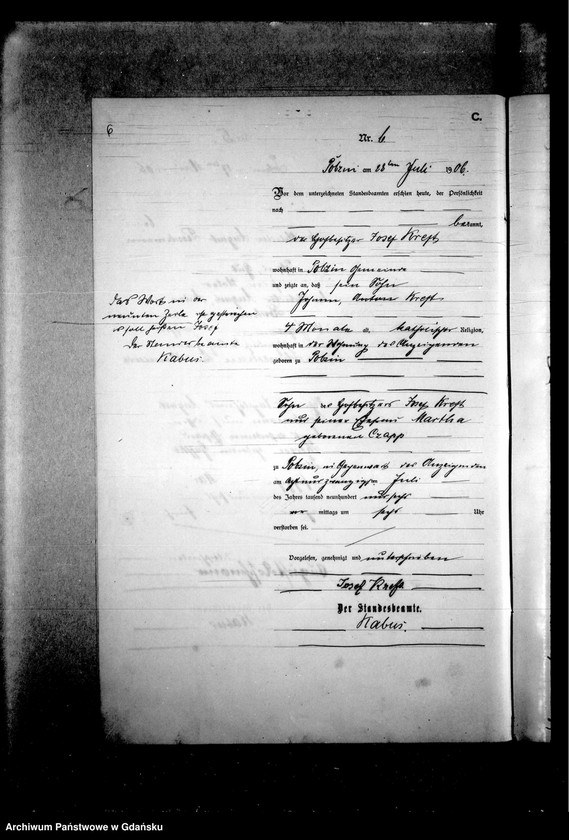 6
C.
Nr. 6
am 28ten Juli 1906.
Vor dem unterzeichneten Standesbeamten erschien heute, der Persönlichkeit
nach
bekannt,
der Hofbesitzer Josef Kreft
wohnhaft in Polzin Gemeinde
und zeigte an, daß sein Sohn
Johann, Anton Kreft
4 Monate a. katholischer Religion,
wohnhaft in der Wohnung des Anzeigenden
geboren zu Polzin
Sohn des Hofbesitzers Josef Kreft
und seiner Ehefrau Martha
geborenen Czapp
zu Polzin, in Gegenwart des Anzeigenden
am achtundzwanzigsten Juli
des Jahres tausend neunhundert und sechs
vor mittags um sechs Uhr
verstorben sei.
Vorgelesen, genehmigt und unterschrieben
Josef Kreft
Der Standesbeamte.
Kabus.
Das Wort in der
neunten Zeile ist gestrichen
es soll heißen Josef
Der Standesbeamte
Kabus.
Archiwum Państwowe w Gdańsku